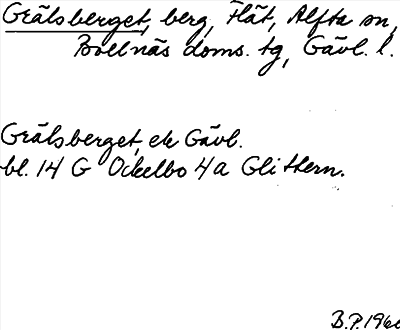 Grälsberget, berg, Flät, Alfta sn,
Bollnäs doms. tg, Gävl. l.
Grälsberget, ek Gävl.
bl. 14 G Ockelbo 4a Glittern.
B.P. 196